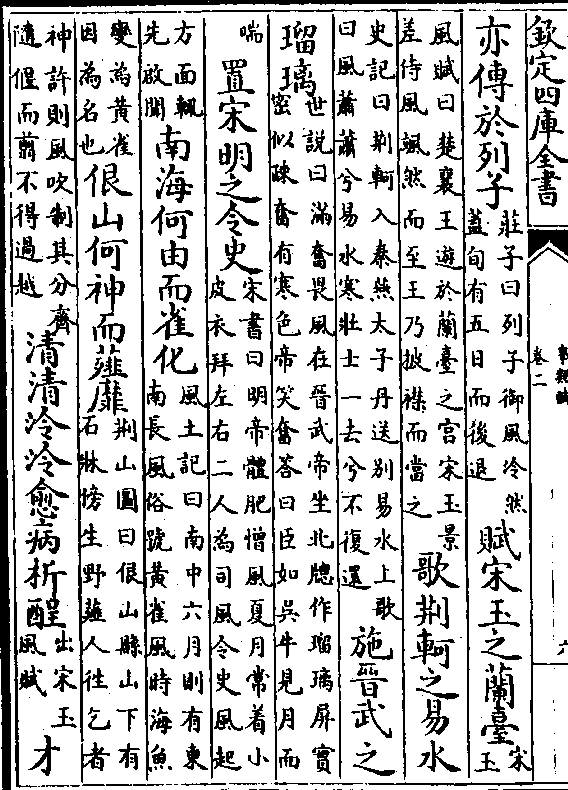 欽定四庫全書
卷二
六
亦傳於列子
莊子曰列子御風泠然
蓋旬有五日而後退
賦宋玉之蘭臺
宋
玉
風賦曰楚襄王遊於蘭臺之宮宋玉景
差侍風颯然而至王乃披襟而當之
歌荆軻之易水
史記曰荆軻入秦燕太子丹送別易水上歌
曰風蕭蕭兮易水寒壯士一去兮不復還
施晉武之
瑠璃
世說曰滿奮畏風在晉武帝坐北牕作瑠璃屏實
密似疎奮有寒色帝笑奮答曰臣如吳牛見月而
喘
置宋明之令史
宋書曰明帝體肥憎風夏月常着小
皮衣拜左右二人為司風令史風起
方面輒
先啟聞
南海何由而雀化
風土記曰南中六月則有東
南長風俗號黃雀風時海魚
變為黃雀
因為名也
佷山何神而薤靡
荆山圖曰佷山縣山下有
石牀傍生野薤人往乞者
神許則風吹制其分齊
隨偃而翦不得過越
清清泠泠愈病析酲
出宋玉
風賦
才